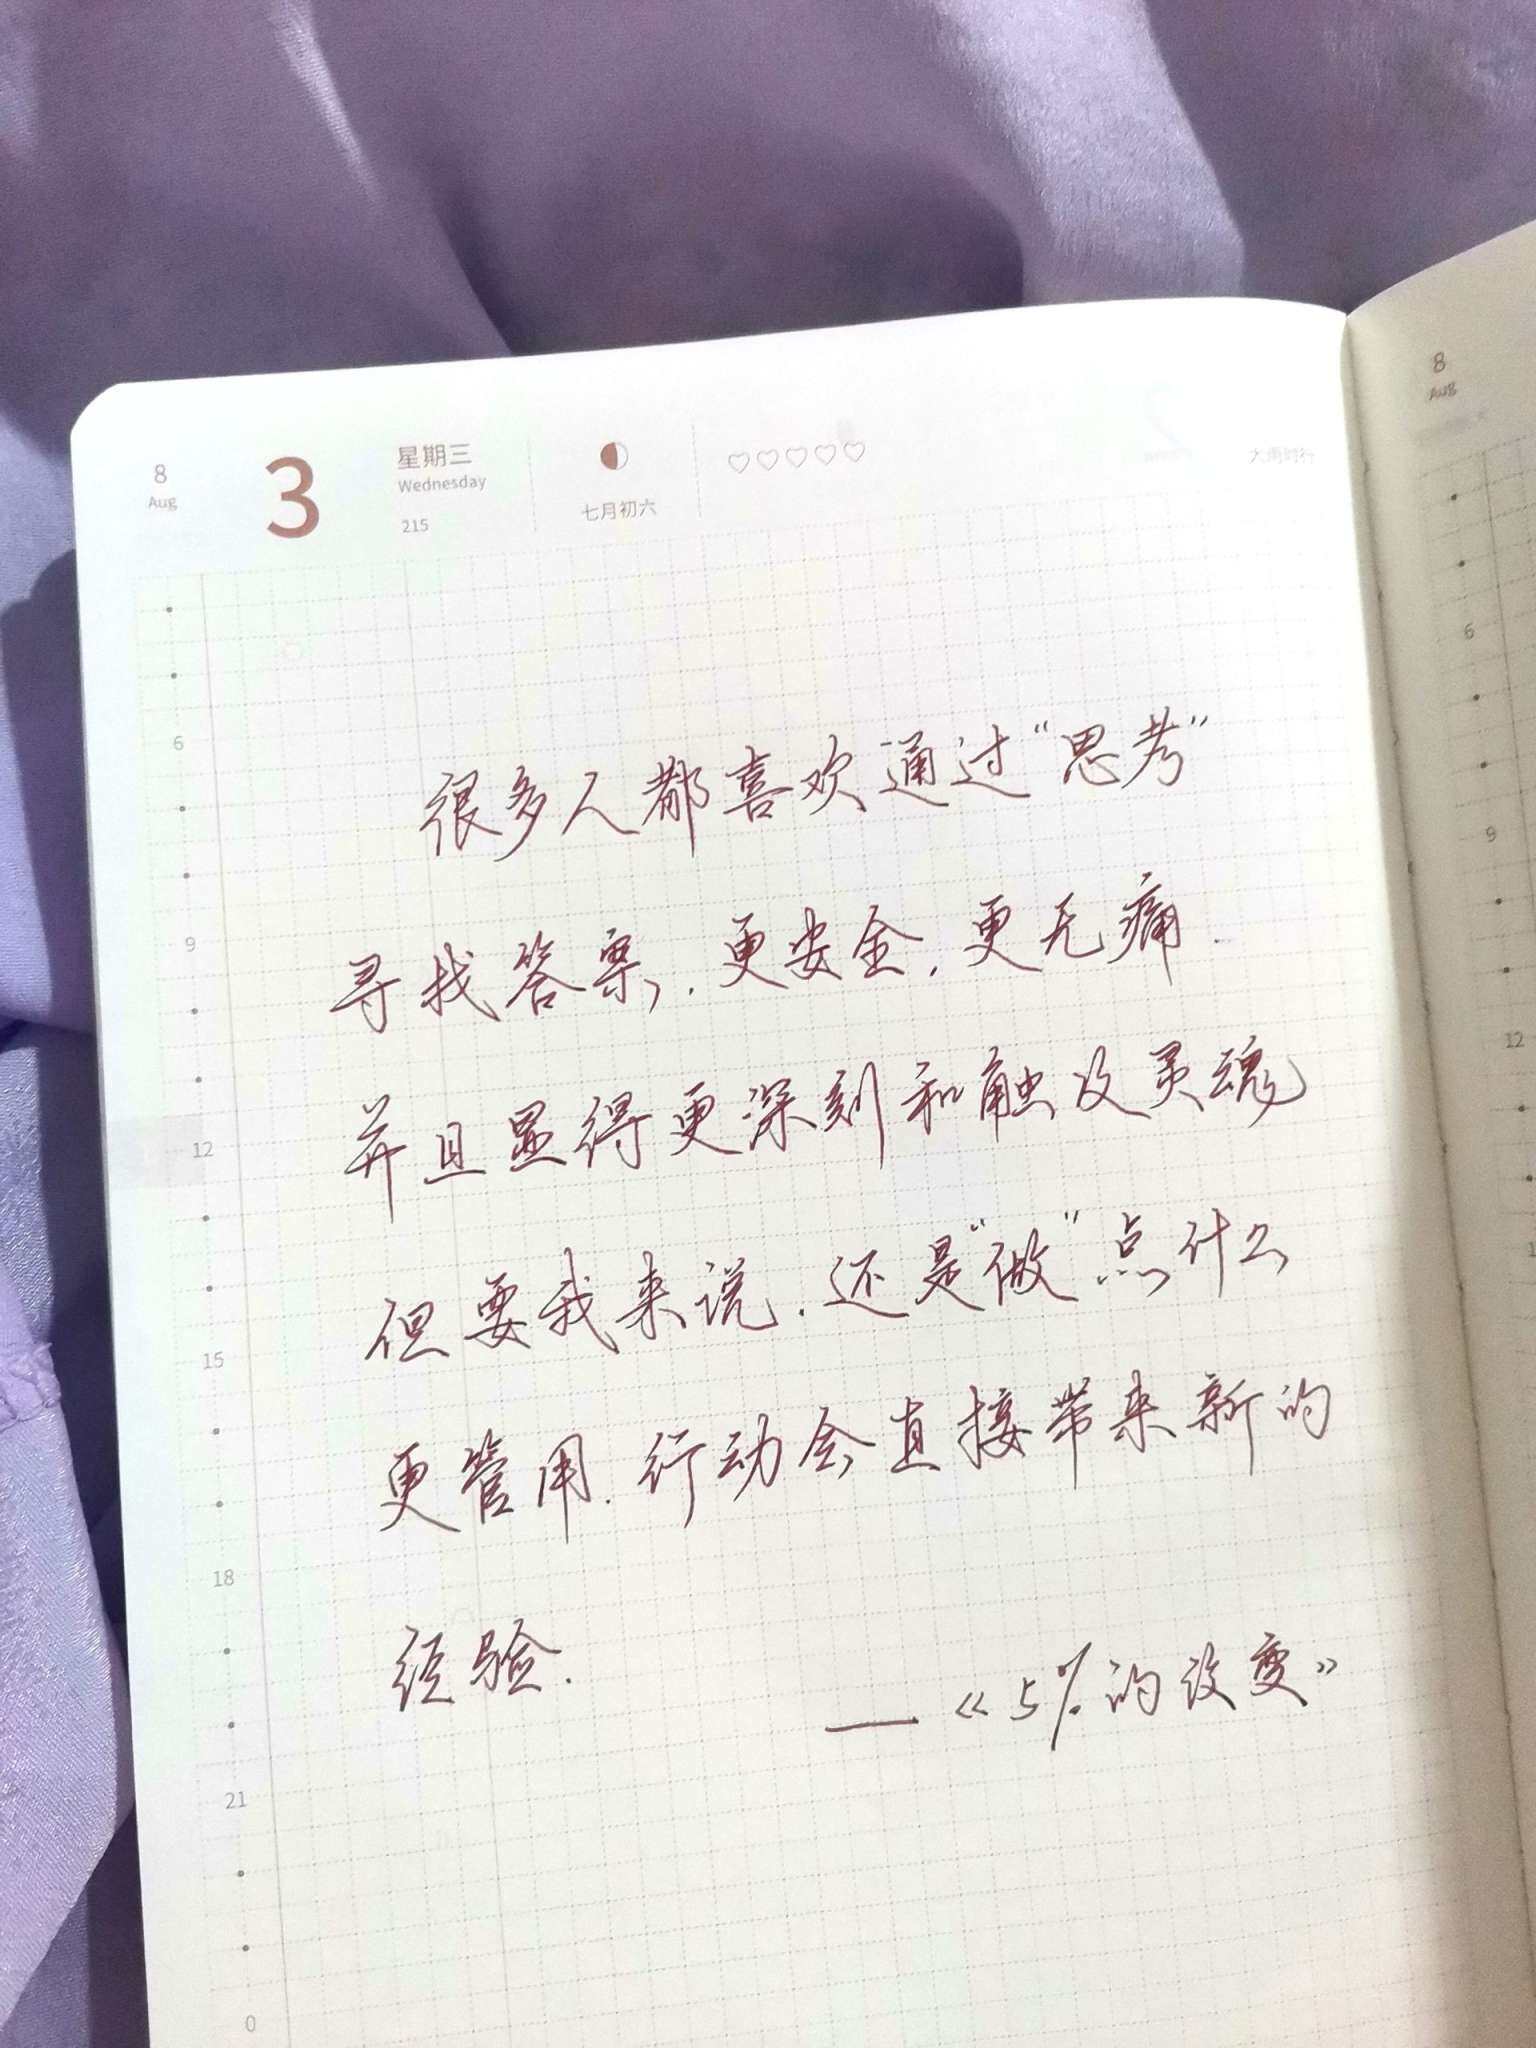 8
Aug
3
星期三
Wednesday
215
七月初六
大雨时行
很多人都喜欢通过“思考”
寻找答案,更安全,更无痛.
并且显得更深刻和触及灵魂
但要我来说,还是“做”点什么
更管用.行动会直接带来新的
经验.
——《5%的改变》
6
9
12
15
18
21
0
8
Aug
6
9
12